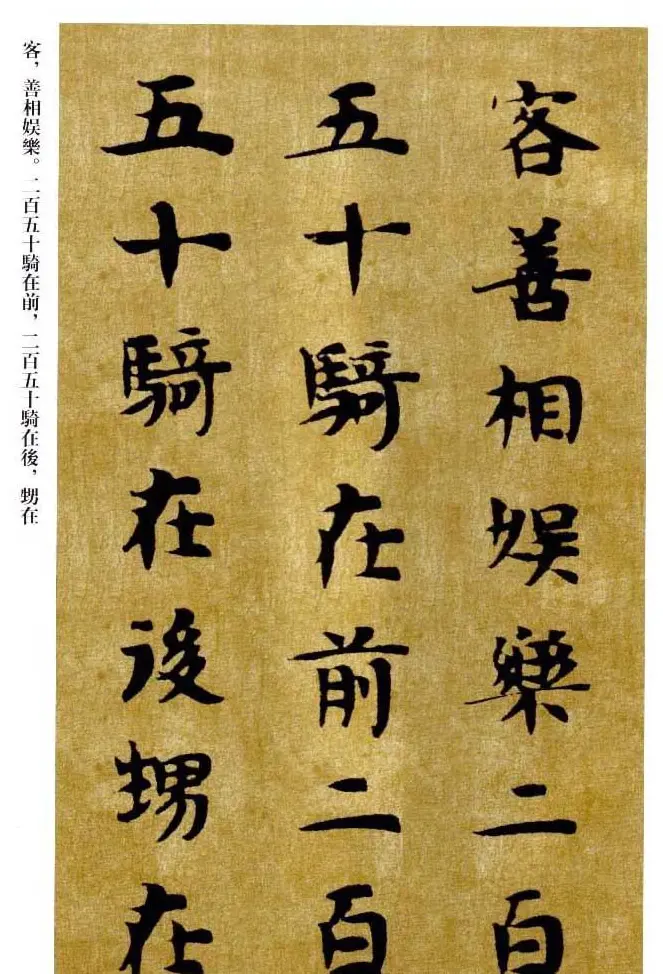 客，善相娱樂。二百五十騎在前，二百五十騎在後，甥在
客善相娱樂二百
五十騎在前二百
五十騎在後甥在